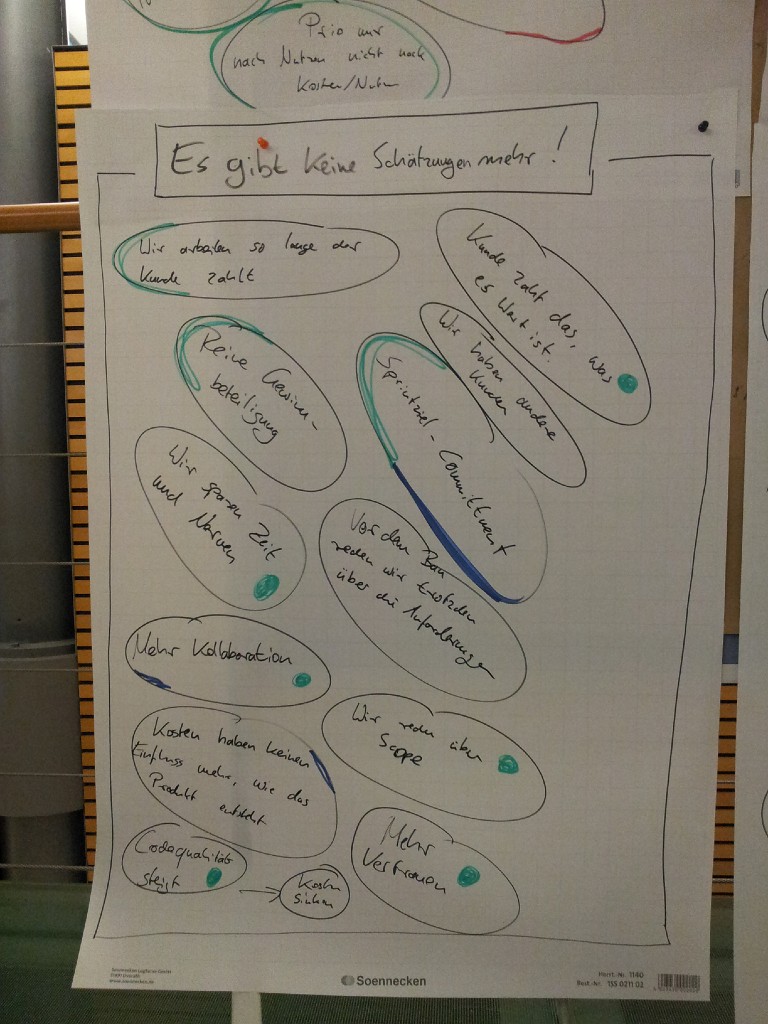 Prio nur
nach Nutzen nicht nach
Kosten/Nutzen
Es gibt keine Schätzungen mehr!
Wir arbeiten so lange der
Kunde zahlt
Kunde zahlt das, was
es Wert ist.
Wir haben andere
Kunden
Reine Gewinn-
beteiligung
Sprintziel-Committment
Wir sparen Zeit
und Nerven
Vor dem Bau
reden wir trotzdem
über die Anforderungen
Mehr Kollaboration
Wir reden über
Scope
Kosten haben keinen
Einfluss mehr, wie das
Produkt entsteht
Codequalität
steigt
Kosten
sinken
Mehr
Vertrauen
Soennecken
www.soennecken.de
Herst.-Nr. 1140
Best.-Nr. 155 0211 02